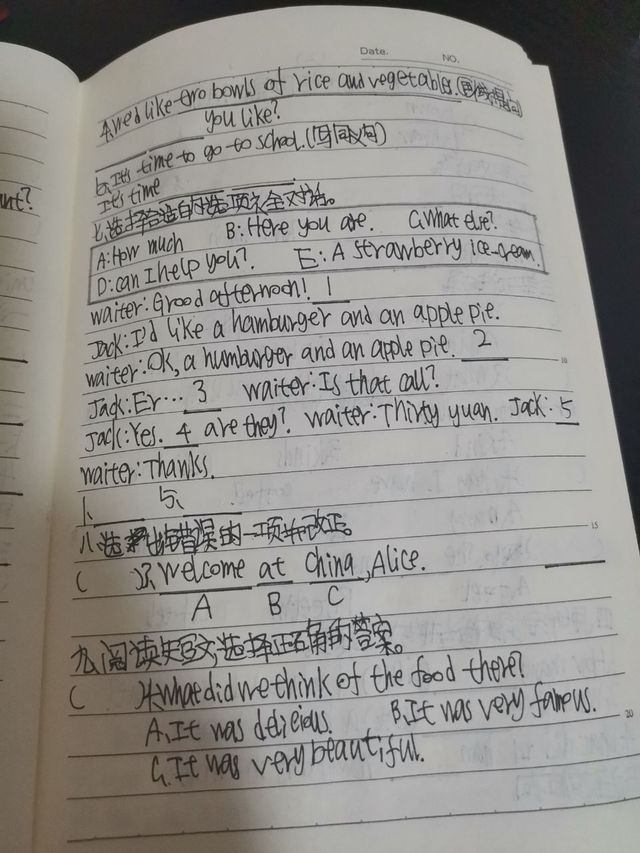 Date.
NO.
4.we'd like two bowls of rice and vegetables.(画线提问)
you like?
6.It's time to go to school.(写同义句)
It's time
七.选择合适的选项补全对话。
A:How much B:Here you are. C:What else?
D:can I help you? E:A strawberry ice-cream.
waiter:Grood afternoon! 1
Jack:I'd like a hamburger and an apple pie.
waiter:Ok, a humburger and an apple pie. 2
Jack:Er... 3 waiter:Is that call?
Jack:Yes. 4 are they? waiter:Thirty yuan. Jack: 5
waiter:Thanks.
1. 5.
八.选出错误的一项并改正。
( )3.Welcome at China, Alice.
A B C
九.阅读短文,选择正确的答案。
( )4.what did we think of the food there?
A.It was delicious. B.It was very famous.
C.It was very beautiful.
unt?
10
15
20